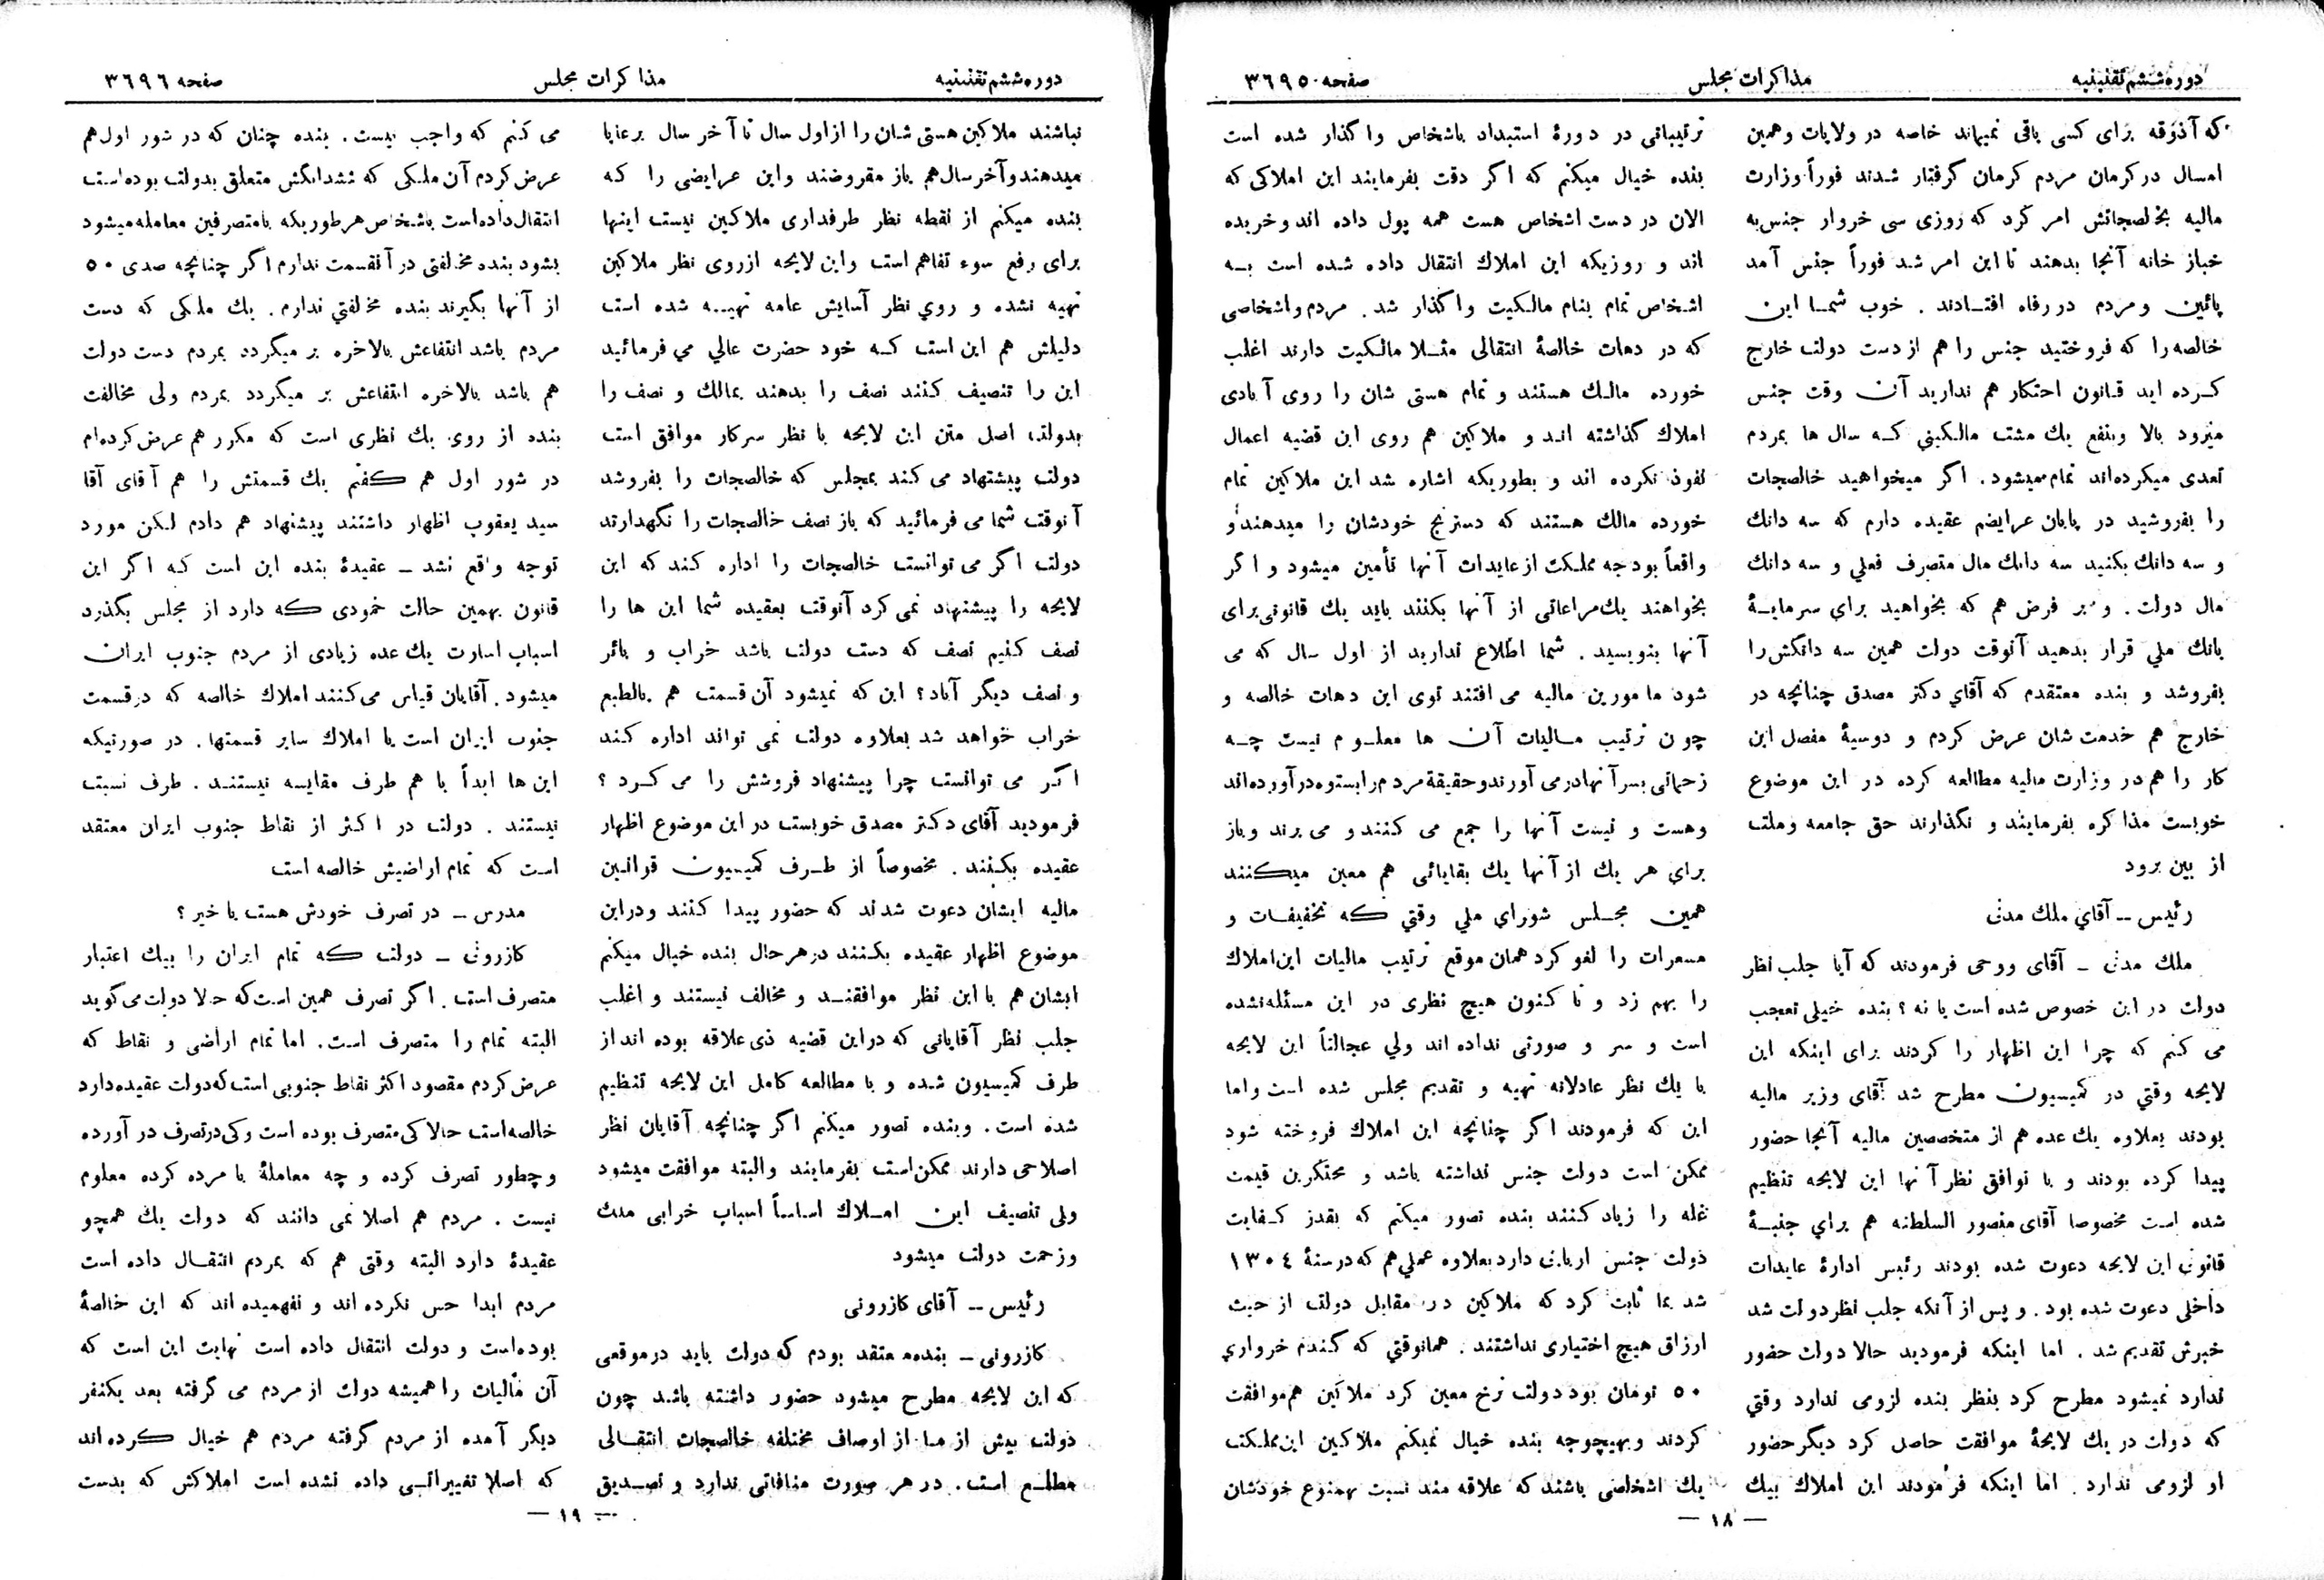 دوره ششم تقنینیه
مذاکرات مجلس
صفحه ۳۶۹۵
که آذوقه برای کسی باقی نمیماند خاصه در ولایات و همین
امسال در کرمان مردم کرمان گرفتار شدند فوراً وزارت
مالیه بخالصجاتش امر کرد که روزی سی خروار جنس به
خباز خانه آنجا بدهند تا این امر شد فوراً جنس آمد
پائین و مردم در رفاه افتادند . خوب شما این
خالصه را که فروختید جنس را هم از دست دولت خارج
کرده اید قانون احتکار هم ندارید آن وقت جنس
میرود بالا و بنفع یك مشت مالکینی که سال ها بمردم
تعدی میکرده‌اند تمام میشود . اگر میخواهید خالصجات
را بفروشید در پایان عرایضم عقیده دارم که سه دانك
و سه دانك بکنید سه دانك مال متصرف فعلی و سه دانك
مال دولت . و بر فرض هم که بخواهید برای سرمایهٔ
بانك ملی قرار بدهید آنوقت دولت همین سه دانگش را
بفروشد و بنده معتقدم که آقای دکتر مصدق چنانچه در
خارج هم خدمت شان عرض کردم و دوسیهٔ مفصل این
کار را هم در وزارت مالیه مطالعه کرده در این موضوع
خوبست مذاکره بفرمایند و نگذارند حق جامعه و ملت
از بین برود
رئیس – آقای ملك مدنی
ملك مدنی – آقای روحی فرمودند که آیا جلب نظر
دولت در این خصوص شده است یا نه ؟ بنده خیلی تعجب
می کنم که چرا این اظهار را کردند برای اینکه این
لایحه وقتی در کمیسیون مطرح شد آقای وزیر مالیه
بودند بعلاوه یك عده هم از متخصصین مالیه آنجا حضور
پیدا کرده بودند و با توافق نظر آنها این لایحه تنظیم
شده است مخصوصا آقای منصور السلطنه هم برای جنبهٔ
قانونی این لایحه دعوت شده بودند رئیس ادارهٔ عایدات
داخلی دعوت شده بود . و پس از آنکه جلب نظر دولت شد
خبرش تقدیم شد . اما اینکه فرمودید حالا دولت حضور
ندارد نمیشود مطرح کرد بنظر بنده لزومی ندارد وقتی
که دولت در یك لایحهٔ موافقت حاصل کرد دیگر حضور
او لزومی ندارد . اما اینکه فرمودند این املاك بیك
ترتیباتی در دورهٔ استبداد باشخاص واگذار شده است
بنده خیال میکنم که اگر دقت بفرمایند این املاکی که
الان در دست اشخاص هست همه پول داده اند و خریده
اند و روزیکه این املاك انتقال داده شده است به
اشخاص تمام بنام مالکیت واگذار شد . مردم و اشخاصی
که در دهات خالصهٔ انتقالی مثلا مالکیت دارند اغلب
خورده مالك هستند و تمام هستی شان را روی آبادی
املاك گذاشته اند و ملاکین هم روی این قضیه اعمال
نفوذ نکرده اند و بطوریکه اشاره شد این ملاکین تمام
خورده مالك هستند که دسترنج خودشان را میدهند و
واقعاً بودجه مملکت از عایدات آنها تأمین میشود و اگر
بخواهند یك مراعاتی از آنها بکنند باید یك قانونی برای
آنها بنویسید . شما اطلاع ندارید از اول سال که می
شود مامورین مالیه می افتند توی این دهات خالصه و
چون ترتیب مالیات آن ها معلوم نیست چه
زحماتی بسر آنها در می آورند و حقیقة مردم را بستوه در آورده‌اند
وهست و نیست آنها را جمع می کنند و می برند و باز
برای هر یك از آنها یك بقایائی هم معین میکنند
همین مجلس شورای ملی وقتی که تخفیفات و
مسعرات را لغو کرد همان موقع ترتیب مالیات این املاك
را بهم زد و تا کنون هیچ نظری در این مسئله نشده
است و سر و صورتی نداده اند ولی عجالتاً این لایحه
با یك نظر عادلانه تهیه و تقدیم مجلس شده است و اما
این که فرمودند اگر چنانچه این املاك فروخته شود
ممکن است دولت جنس نداشته باشد و محتکرین قیمت
غله را زیاد کنند بنده تصور میکنم که بقدر کفایت
دولت جنس اربابی دارد بعلاوه عملی هم که در سنهٔ ۱۳۰۴
شد بما ثابت کرد که ملاکین در مقابل دولت از حیث
ارزاق هیچ اختیاری نداشتند . همانوقتی که گندم خرواری
۵۰ تومان بود دولت نرخ معین کرد ملاکین هم موافقت
کردند و بهیچوجه بنده خیال نمیکنم ملاکین این مملکت
یك اشخاصی باشند که علاقه مند نسبت بهمنوع خودشان
— ۱۸ —
دوره ششم تقنینیه
مذاکرات مجلس
صفحه ۳۶۹۶
نباشند ملاکین هستی شان را از اول سال تا آخر سال برعایا
میدهند و آخر سال هم باز مقروضند و این عرایضی را که
بنده میکنم از نقطه نظر طرفداری ملاکین نیست اینها
برای رفع سوء تفاهم است و این لایحه از روی نظر ملاکین
تهیه نشده و روی نظر آسایش عامه تهیه شده است
دلیلش هم این است که خود حضرت عالی می فرمائید
این را تنصیف کنند نصف را بدهند بمالك و نصف را
بدولت، اصل متن این لایحه با نظر سرکار موافق است
دولت پیشنهاد می کند بمجلس که خالصجات را بفروشد
آنوقت شما می فرمائید که باز نصف خالصجات را نگهدارند
دولت اگر می توانست خالصجات را اداره کند که این
لایحه را پیشنهاد نمی کرد آنوقت بعقیده شما این ها را
نصف کنیم نصف که دست دولت باشد خراب و بائر
و نصف دیگر آباد ؟ این که نمیشود آن قسمت هم بالطبع
خراب خواهد شد بعلاوه دولت نمی تواند اداره کند
اگر می توانست چرا پیشنهاد فروشش را می کرد ؟
فرمودید آقای دکتر مصدق خوبست در این موضوع اظهار
عقیده بکنند . مخصوصاً از طرف کمیسیون قوانین
مالیه ایشان دعوت شدند که حضور پیدا کنند و در این
موضوع اظهار عقیده بکنند در هر حال بنده خیال میکنم
ایشان هم با این نظر موافقند و مخالف نیستند و اغلب
جلب نظر آقایانی که در این قضیه ذی علاقه بوده اند از
طرف کمیسیون شده و با مطالعه کامل این لایحه تنظیم
شده است . و بنده تصور میکنم اگر چنانچه آقایان نظر
اصلاحی دارند ممکن است بفرمایند و البته موافقت میشود
ولی تنصیف این املاك اساساً اسباب خرابی ملك
و زحمت دولت میشود
رئیس – آقای کازرونی
کازرونی – بنده معتقد بودم که دولت باید در موقعی
که این لایحه مطرح میشود حضور داشته باشد چون
دولت بیش از ما از اوصاف مختلفه خالصجات انتقالی
مطلع است . در هر صورت منافاتی ندارد و تصدیق
می کنم که واجب نیست . بنده چنان که در شور اول هم
عرض کردم آن ملکی که ششدانگش متعلق بدولت بوده است
انتقال داده است باشخاص هر طوریکه با متصرفین معامله میشود
بشود بنده مخالفتی در آنقسمت ندارم اگر چنانچه صدی ۵۰
از آنها بگیرند بنده مخالفتی ندارم . یك ملکی که دست
مردم باشد انتفاعش بالاخره بر میگردد بمردم دست دولت
هم باشد بالاخره انتفاعش بر میگردد بمردم ولی مخالفت
بنده از روی یك نظری است که مکرر هم عرض کرده‌ام
در شور اول هم گفتم یك قسمتش را هم آقای آقا
سید یعقوب اظهار داشتند پیشنهاد هم دادم لکن مورد
توجه واقع نشد – عقیدهٔ بنده این است که اگر این
قانون بهمین حالت خمودی که دارد از مجلس بگذرد
اسباب اسارت یك عده زیادی از مردم جنوب ایران
میشود . آقایان قیاس می کنند املاك خالصه که در قسمت
جنوب ایران است با املاك سایر قسمتها . در صورتیکه
این ها ابداً با هم طرف مقایسه نیستند . طرف نسبت
نیستند . دولت در اکثر از نقاط جنوب ایران معتقد
است که تمام اراضیش خالصه است
مدرس – در تصرف خودش هست یا خیر ؟
کازرونی – دولت که تمام ایران را بیك اعتبار
متصرف است . اگر تصرف همین است که حالا دولت می گوید
البته تمام را متصرف است . اما تمام اراضی و نقاط که
عرض کردم مقصود اکثر نقاط جنوبی است که دولت عقیده دارد
خالصه است حالا کی متصرف بوده است و کی در تصرف در آورده
و چطور تصرف کرده و چه معاملهٔ با مرده کرده معلوم
نیست . مردم هم اصلا نمی دانند که دولت یك همچو
عقیدهٔ دارد البته وقتی هم که بمردم انتقال داده است
مردم ابدا حس نکرده اند و نفهمیده اند که این خالصهٔ
بوده است و دولت انتقال داده است نهایت این است که
آن مالیات را همیشه دولت از مردم می گرفته بعد یکنفر
دیگر آمده از مردم گرفته مردم هم خیال کرده اند
که اصلا تغییراتی داده نشده است املاکش که بدست
— ۱۹ —